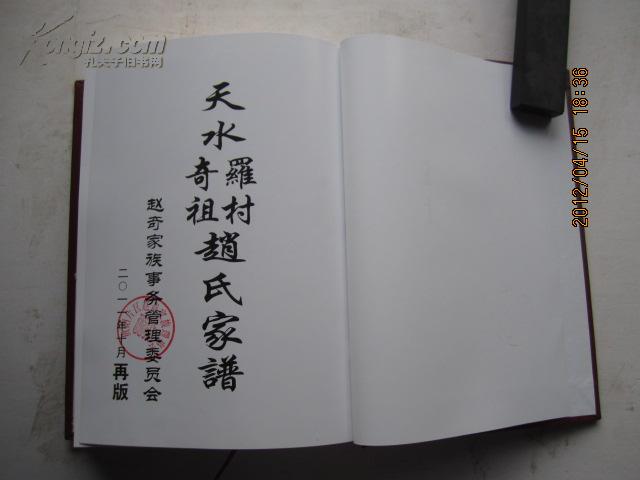 Kongfz.com
孔夫子旧书网
天水
羅村
奇祖
趙氏家譜
赵奇家族事务管理委员会
二〇一一年十月再版
2012/04/15 18:36